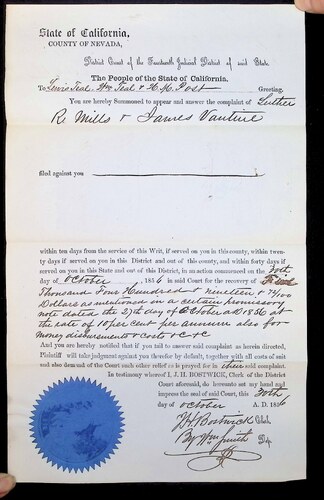 State of California,
COUNTY OF NEVADA,
District Court of the Fourteenth Judicial District of said State.
The People of the State of California,
To Lewis Teal, Wm Teal & H. M. Post Greeting.
You are hereby Summoned to appear and answer the complaint of Luther
R. Mills & James Vantine
filed against you
within ten days from the service of this Writ, if served on you in this county, within twen-
ty days if served on you in this District and out of this county, and within forty days if
served on you in this State and out of this District, in an action commenced on the 30th
day of October, 1856 in said Court for the recovery of Five
Thousand Four Hundred & nineteen & 74/100
Dollars as mentioned in a certain promissory
note dated the 27th day of October A D 1856 at
the rate of 10 per cent per annum also for
money disbursements & costs &c &c
And you are hereby notified that if you fail to answer said complaint as herein directed,
Plaintiff will take judgment against you therefor by default, together with all costs of suit
and also demand of the Court such other relief as is prayed for in their said complaint.
In testimony whereof I, J. H. BOSTWICK, Clerk of the District
Court aforesaid, do hereunto set my hand and
impress the seal of said Court, this 30th
day of October A. D. 1856
J H Bostwick Clerk.
By Wm Smith Dep